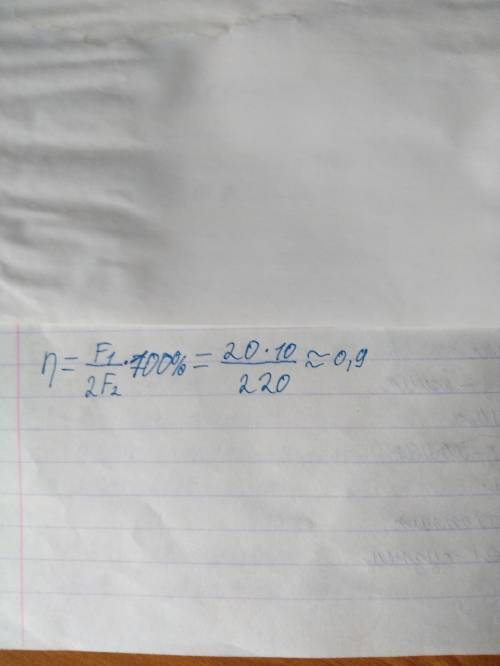 η = F₁/2F₂ · 100% = 20 · 10/220 ≈ 0,9